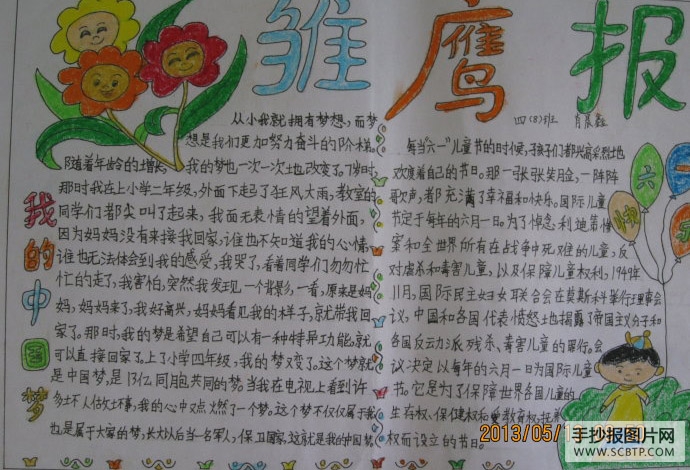 雏鹰报
四(8)班
我的中国梦
从小我就拥有梦想,而梦
想是我们更加努力奋斗的阶梯。
随着年龄的增长,我的梦也一次一次地改变了。
那时我在上小学二年级,外面下起了狂风大雨,教室的
同学们都尖叫了起来,我面无表情的望着外面,
因为妈妈没有来接我回家,谁也不知道我的心情,
谁也无法体会到我的感受,我哭了,看着同学们匆匆忙
忙的走了,我害怕,突然我发现一个背影,一看,原来是妈
妈,妈妈来了,我好高兴,妈妈看见我的样子,就带我回
家了。那时,我的梦是希望自己可以有一种特异功能,就
可以直接回家了。上了小学四年级,我的梦又变了。这个梦就
是中国梦,是13亿同胞共同的梦。当我在电视上看到许
多,我的心中又点燃了一个梦。这个梦不仅仅属于我,
也是属于大家的梦,长大以后当一名军人,保卫国家,这就是我的中国梦
每当"六一"儿童节的时候,孩子们都兴高采烈地
欢度着自己的节日。那一张张笑脸,一阵阵
歌声,都充满了幸福和快乐。国际儿童
节定于每年的六月一日。为了悼念利迪策惨
案和全世界所有在战争中死难的儿童,反
对虐杀和毒害儿童,以及保障儿童权利,1949年
11月,国际民主妇女联合会在莫斯科举行理事会
议,中国和各国代表愤怒地揭露了帝国主义分子和
各国反动派残杀、毒害儿童的罪行。会
议决定以每年的六月一日为国际儿童
节。它是为了保障世界各国儿童的
生存权、保健权和受教育权、抚养
权而设立的节日。
六一快乐
2013/05/1
手抄报图片网
WWW.SCBTP.COM